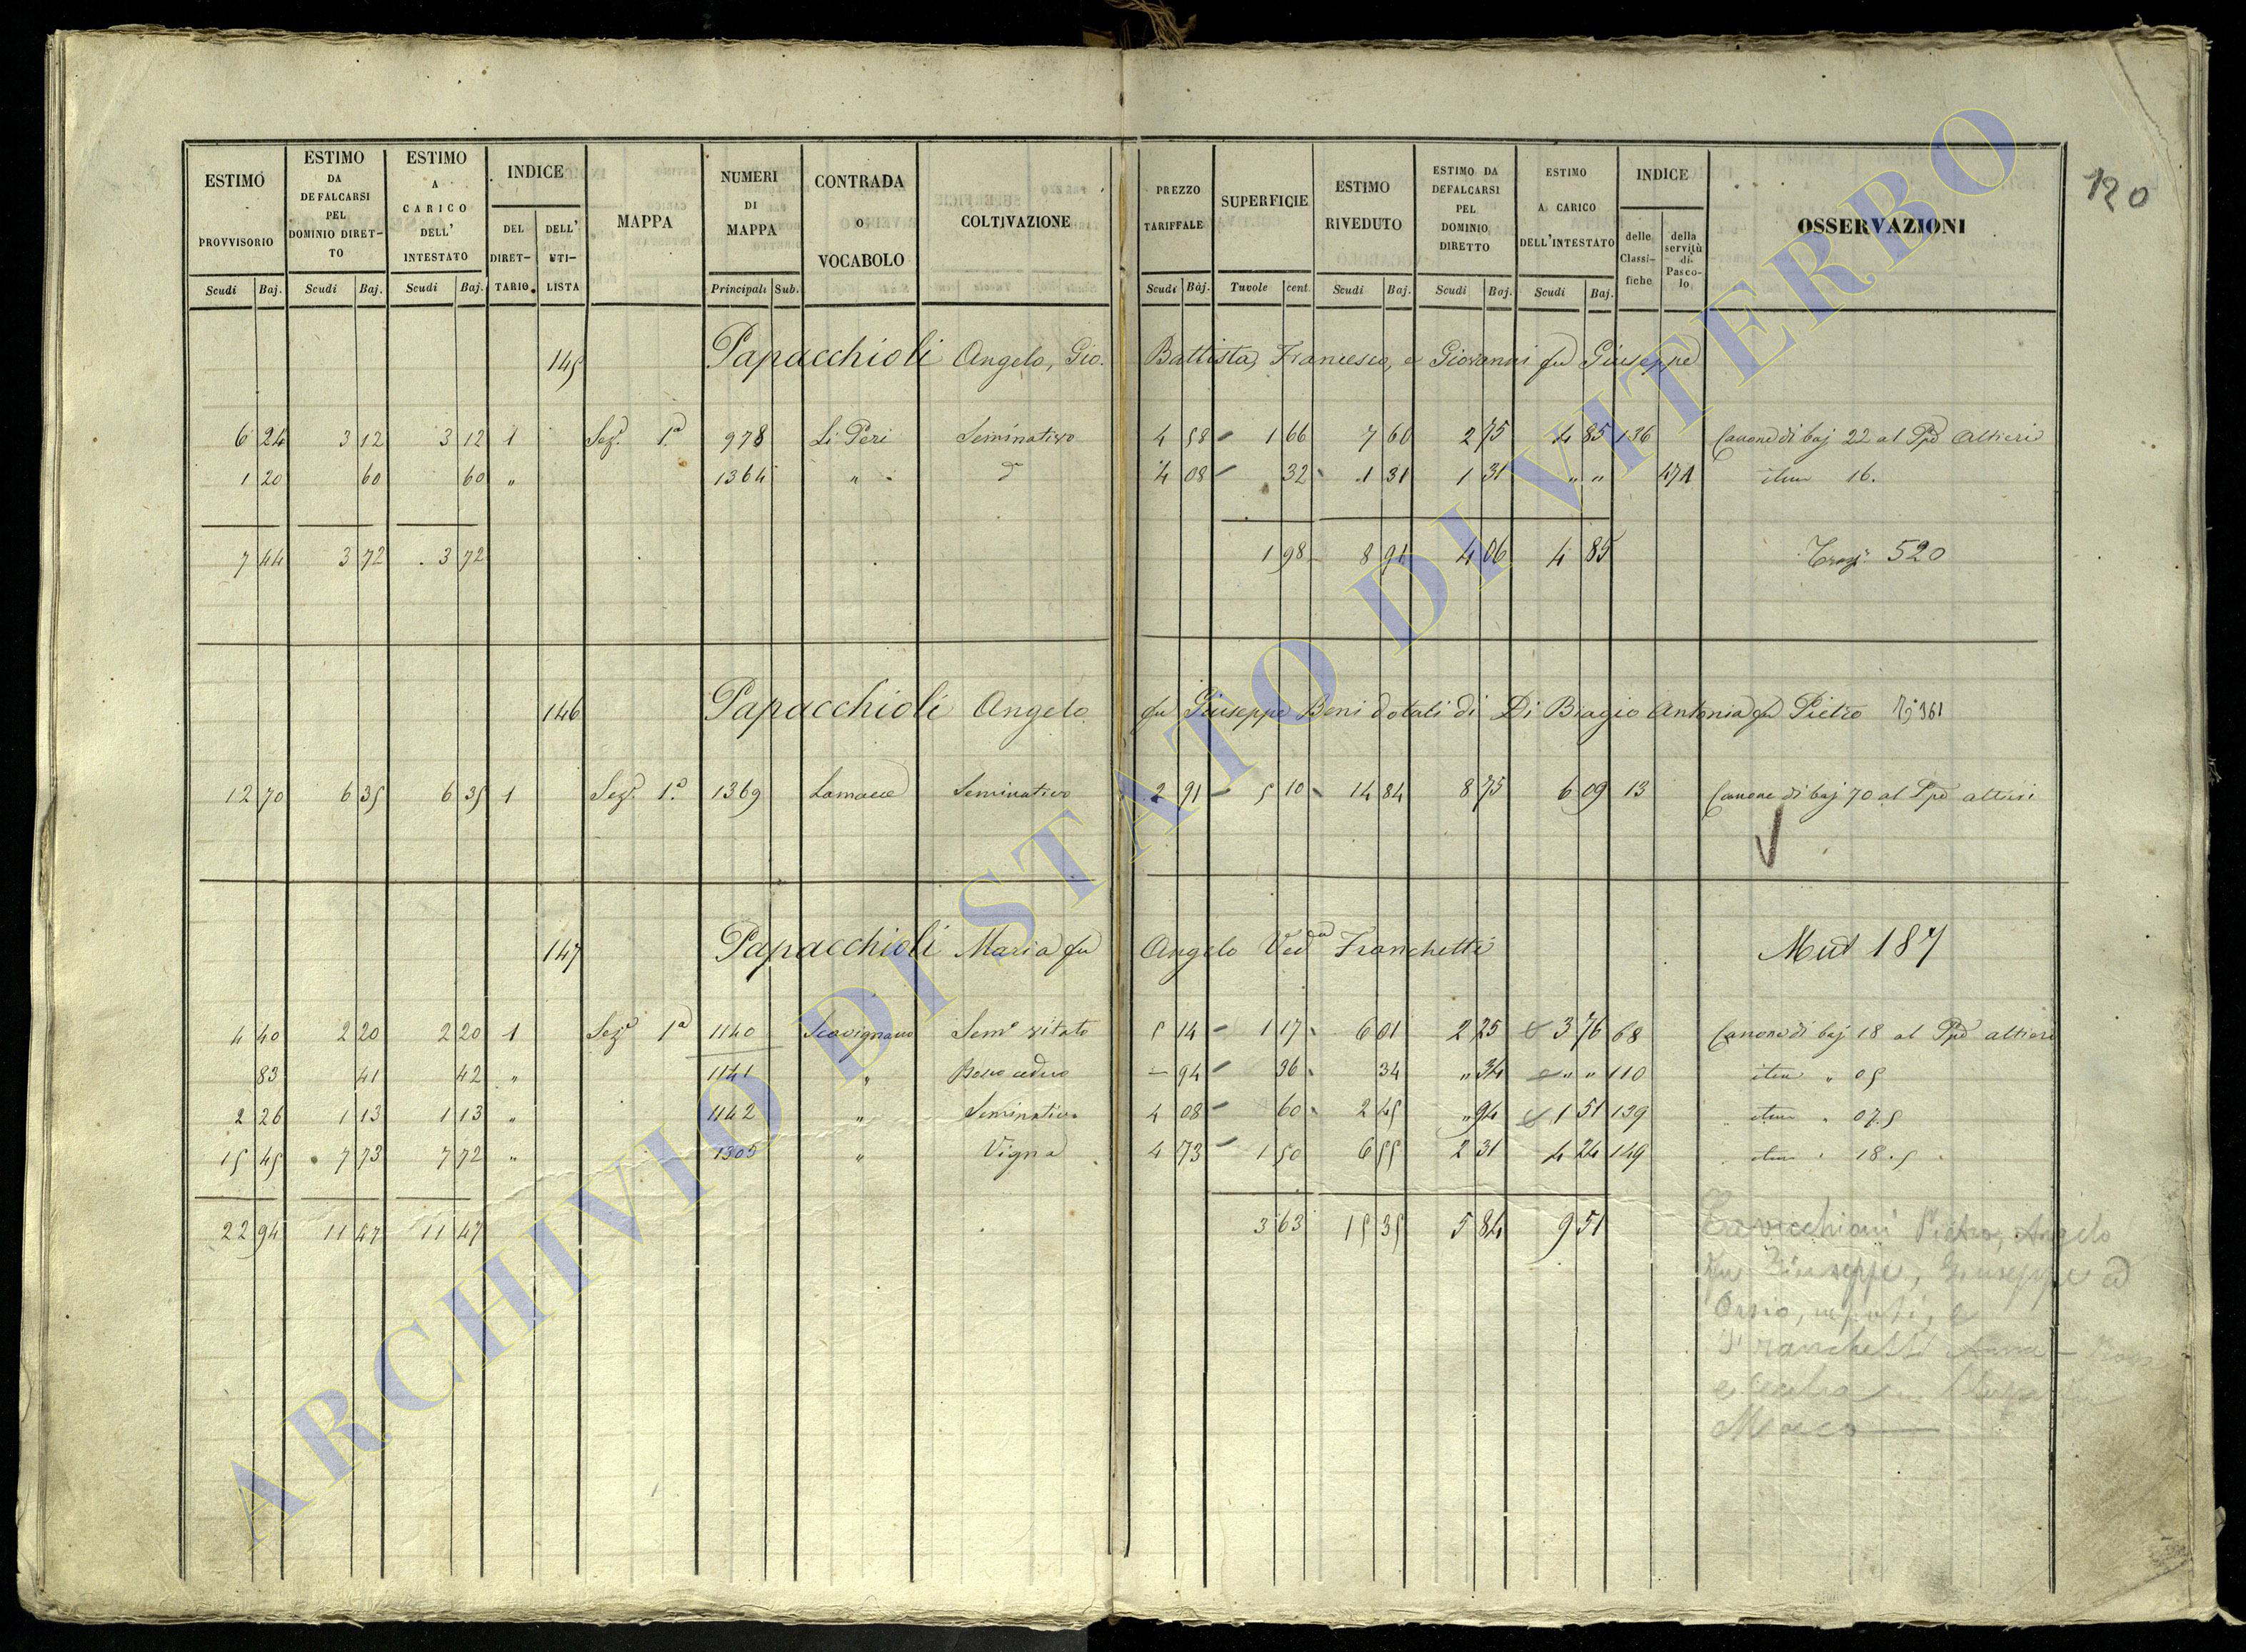 120
ESTIMO PROVVISORIO Scudi Baj.
ESTIMO DA DEFALCARSI PEL DOMINIO DIRET-TO Scudi Baj.
ESTIMO A CARICO DELL' INTESTATO Scudi Baj.
INDICE DEL DIRET-TARIO. DELL' UTI-LISTA
MAPPA
NUMERI DI MAPPA Principali Sub.
CONTRADA O VOCABOLO
COLTIVAZIONE
PREZZO TARIFFALE Scudi Baj.
SUPERFICIE Tavole cent.
ESTIMO RIVEDUTO Scudi Baj.
ESTIMO DA DEFALCARSI PEL DOMINIO DIRETTO Scudi Baj.
ESTIMO A CARICO DELL'INTESTATO Scudi Baj.
INDICE delle Classi-fiche della servitù di Pasco-lo
OSSERVAZIONI
145 Papacchioli Angelo, Gio. Battista, Francesco, e Giovanni fu Giuseppe
6 24 3 12 3 12 1 Sez. 1.a 978 Li Peri Seminativo 4 58 1 66 7 60 2 75 4 85 136 Canone di baj 22 al Ppe Altieri
1 20 60 60 " 1364 " d 4 08 32 1 31 1 31 " " 471 item 16.
7 44 3 72 3 72 1 98 8 91 4 06 4 85 520
146 Papacchioli Angelo fu Giuseppe Beni dotali di Di Biagio Antonia fu Pietro 361
12 70 6 35 6 35 1 Sez. 1.a 1369 Lamacce Seminativo 2 91 5 10 14 84 8 75 6 09 13 Canone di baj 70 al Ppe altieri
147 Papacchioli Maria fu Angelo Ved.a Franchetti Mut 187
4 40 2 20 2 20 1 Sez. 1.a 1140 Scavignano Sem.o vitato 5 14 1 17 6 01 2 25 3 76 68 Canone di baj 18 al Ppe altieri
83 41 42 " 1141 " Bosco ceduo - 94 36 34 " 34 " " 110 item " 05
2 26 1 13 1 13 " 1142 " Seminativo 4 08 60 2 45 " 94 1 51 139 item " 07.5
15 45 7 73 7 72 " 1305 " Vigna 4 73 1 50 6 55 2 31 4 24 149 item " 18.5
22 94 11 47 11 47 3 63 15 35 5 84 9 51
Pietro, Angelo
fu Giuseppe, Giuseppe ed
nipoti, e
Franchetti Anna
e
ARCHIVIO DI STATO DI VITERBO